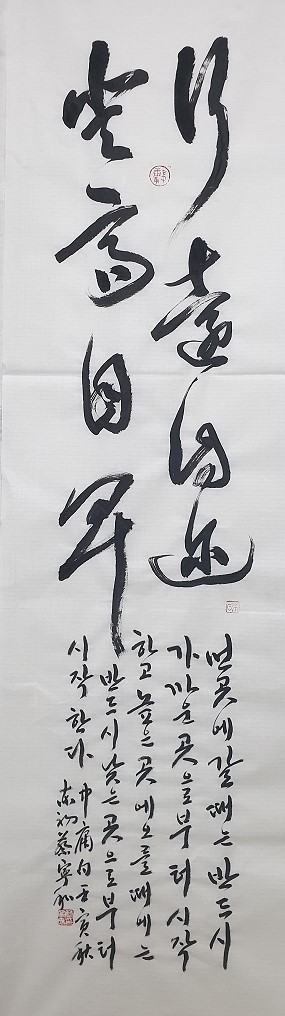 行遠自迩
登高自卑
먼 곳에 갈 때는 반드시
가까운 곳으로부터 시작
하고 높은 곳에 오를 때에는
반드시 낮은 곳으로부터
시작한다
中庸句 壬寅秋